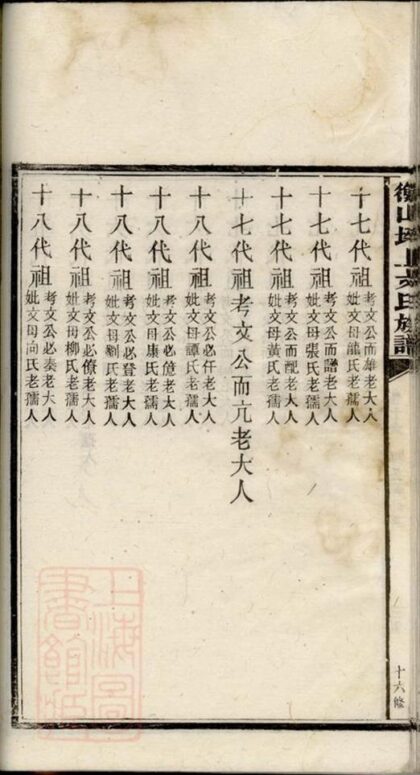 衡山坪上文氏族譜
十六修
十七代祖
考文公而雄老大人
妣文母龍氏老孺人
十七代祖
考文公而譜老大人
妣文母張氏老孺人
十七代祖
考文公而配老大人
妣文母黃氏老孺人
十七代祖考文公而亢老大人
十八代祖
考文公必仟老大人
妣文母譚氏老孺人
十八代祖
考文公必億老大人
妣文母康氏老孺人
十八代祖
考文公必登老大人
妣文母劉氏老孺人
十八代祖
考文公必僚老大人
妣文母柳氏老孺人
十八代祖
考文公必泰老大人
妣文母向氏老孺人
上海圖
書館藏